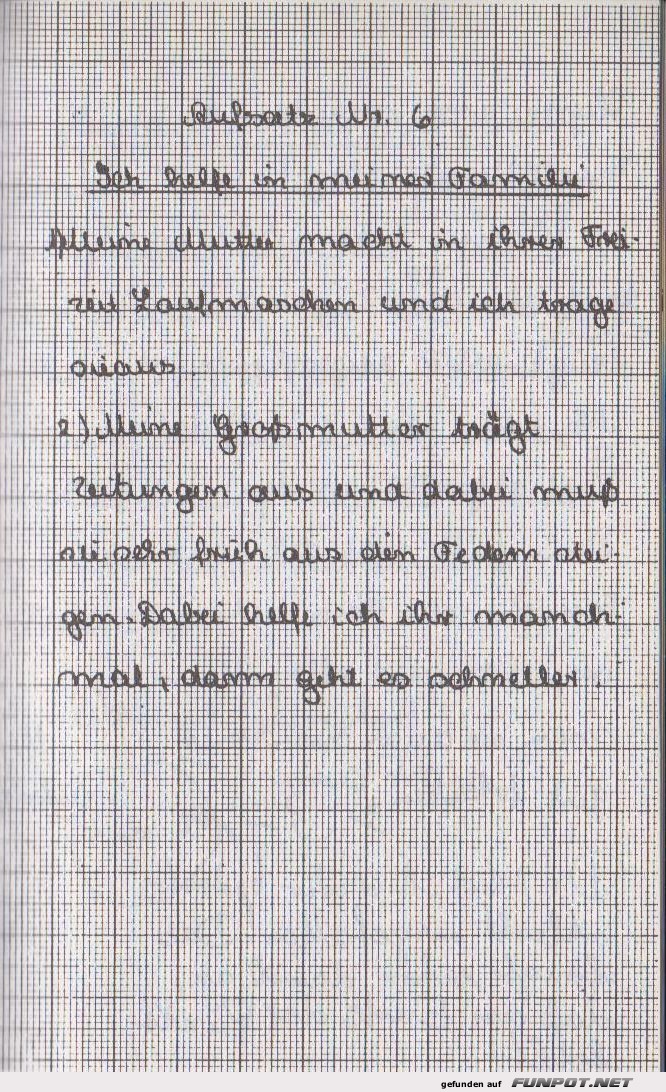 Aufsatz Nr. 6
Ich helfe in meiner Familie
1) Meine Mutter macht in ihrer Frei-
zeit Laufmaschen und ich trage
sie aus.
2) Meine Großmutter trägt
Zeitungen aus und dabei muß
sie sehr früh aus den Federn stei-
gen. Dabei helfe ich ihr manch-
mal, dann geht es schneller.
gefunden auf FUNPOT.NET